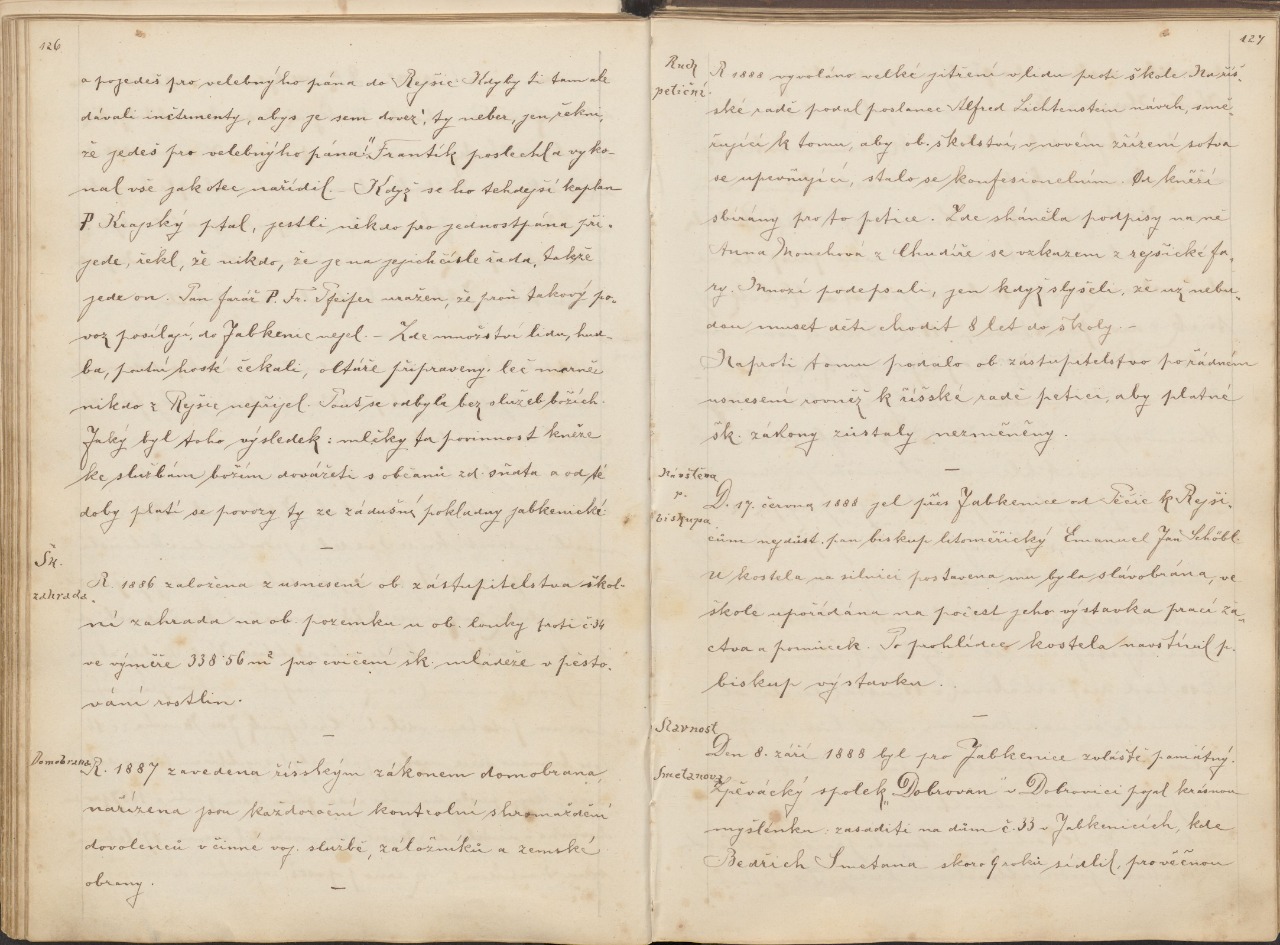 126
a pojedeš pro velebnýho pána do Rejšic. Kdyby ti tam ale
dávali inštrumenty, abys je sem dovez', ty neber, jen řekni,
že jedeš pro velebnýho pána!" Frantík poslechl a vyko-
nal vše jak otec nařídil. – Když se ho tehdejší kaplan
P. Krajský ptal, jestli někdo pro jednostpána při-
jede, řekl, že nikdo, že je na jejich čísle řada, takže
jede on. Pan farář P. Fr. Pfeifer uražen, že proň takový po-
voz posílají, do Jabkenic nejel. – Zde množství lidu, hud-
ba, poutní hosté čekali, oltáře připraveny, leč marně
nikdo z Rejšic nepřijel. Pouť se odbyla bez služeb božích.
Jaký byl toho výsledek: mlčky ta povinnost kněze
ke službám božím dovážeti s občanů zd. sňata a od té
doby platí se povozy ty ze zádušné pokladny jabkenické
–
Šk.
zahrada.
R. 1886 založena z usnesení ob. zástupitelstva škol-
ní zahrada na ob. pozemku u ob. louky proti č. 34
ve výměře 338·56 m² pro cvičení šk. mládeže v pěsto-
vání rostlin.
–
Domobrana
R. 1887 zavedena říšským zákonem domobrana,
nařízena jsou každoroční kontrolní shromáždění
dovolenců v činné voj. službě, záložníků a zemské
obrany.
–
127
Ruch
petiční.
R 1888 vyvoláno velké jitření v lidu proti škole. Na říš-
ské radě podal poslanec Alfred Lichtenstein návrh, smě-
řující k tomu, aby ob. školství, v novém zřízení sotva
se upevňující, stalo se konfesionelním. Od kněží
sbírány pro to petice. Zde sháněla podpisy na ně
Anna Mouchová z Chudíře se vzkazem z rejšické fa-
ry. Mnozí podepsali, jen když slyšeli, že už nebu-
dou muset děti chodit 8 let do školy. –
Naproti tomu podalo ob. zastupitelstvo po řádném
usnesení rovněž k říšské radě petici, aby platné
šk. zákony zůstaly nezměněny.
–
Návštěva
p.
biskupa
D. 17. června 1888 jel přes Jabkenice od Pěčic k Rejši-
cům nejdůst. pan biskup litoměřický Emanuel Jan Schöbl.
U kostela na silnici postavena mu byla slavobrána, ve
škole uspořádána na počest jeho výstavka prací žá-
ctva a pomůcek. Po prohlídce kostela navštívil p.
biskup výstavku.
–
Slavnost
Smetanova
Den 8. září 1888 byl pro Jabkenice zvláště památný.
Zpěvácký spolek „Dobrovan" v Dobrovici pojal krásnou
myšlénku: zasaditi na dům č. 33 v Jabkenicích, kde
Bedřich Smetana skoro 9 roků sídlil, provĕčnou